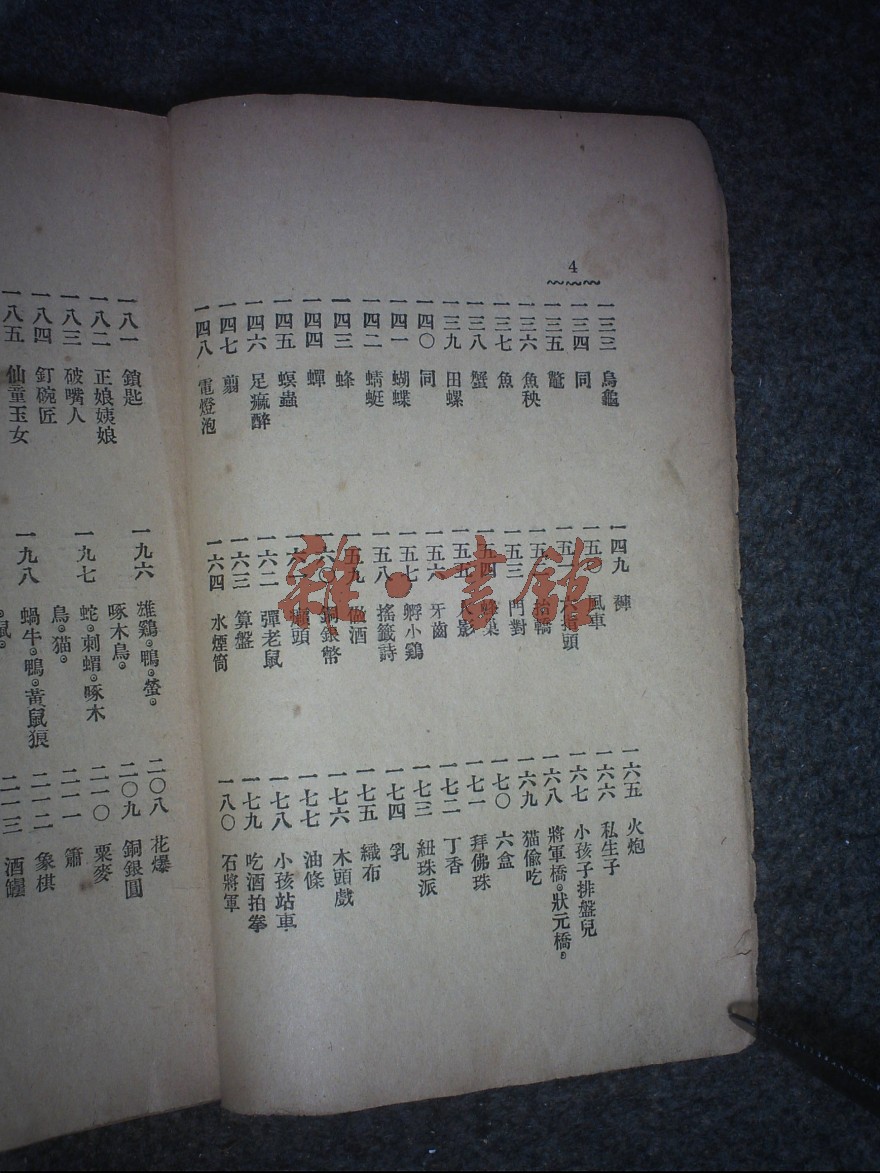 4
一三三 烏龜
一三四 同
一三五 鼈
一三六 魚秧
一三七 魚
一三八 蟹
一三九 田螺
一四〇 同
一四一 蝴蝶
一四二 蜻蜓
一四三 蜂
一四四 蟬
一四五 螟蟲
一四六 足瘋醉
一四七 翦
一四八 電燈泡
一四九
一五〇 風車
一五一 六指頭
一五二
一五三 門對
一五四 蜂巢
一五五 人影
一五六 牙齒
一五七 孵小鷄
一五八 搖籤詩
一五九 酒
一六〇 銅銀幣
一六一 頭
一六二 彈老鼠
一六三 算盤
一六四 水煙筒
一六五 火炮
一六六 私生子
一六七 小孩子排盤兒
一六八 將軍橋。狀元橋。
一六九 猫偷吃
一七〇 六盒
一七一 拜佛珠
一七二 丁香
一七三 紐珠派
一七四 乳
一七五 織布
一七六 木頭戲
一七七 油條
一七八 小孩站車
一七九 吃酒拍拳
一八〇 石將軍
一八一 鎖匙
一八二 正娘姨娘
一八三 破嘴人
一八四 釘碗匠
一八五 仙童玉女
一九六 雄鷄。鴨。螢。
啄木鳥。
一九七 蛇。刺蝟。啄木
鳥。猫。
一九八 蝸牛。鴨。黃鼠狼
。鼠。
二〇八 花爆
二〇九 銅銀圓
二一〇 粟麥
二一一 簫
二一二 象棋
二一三 酒罎
雜·書館